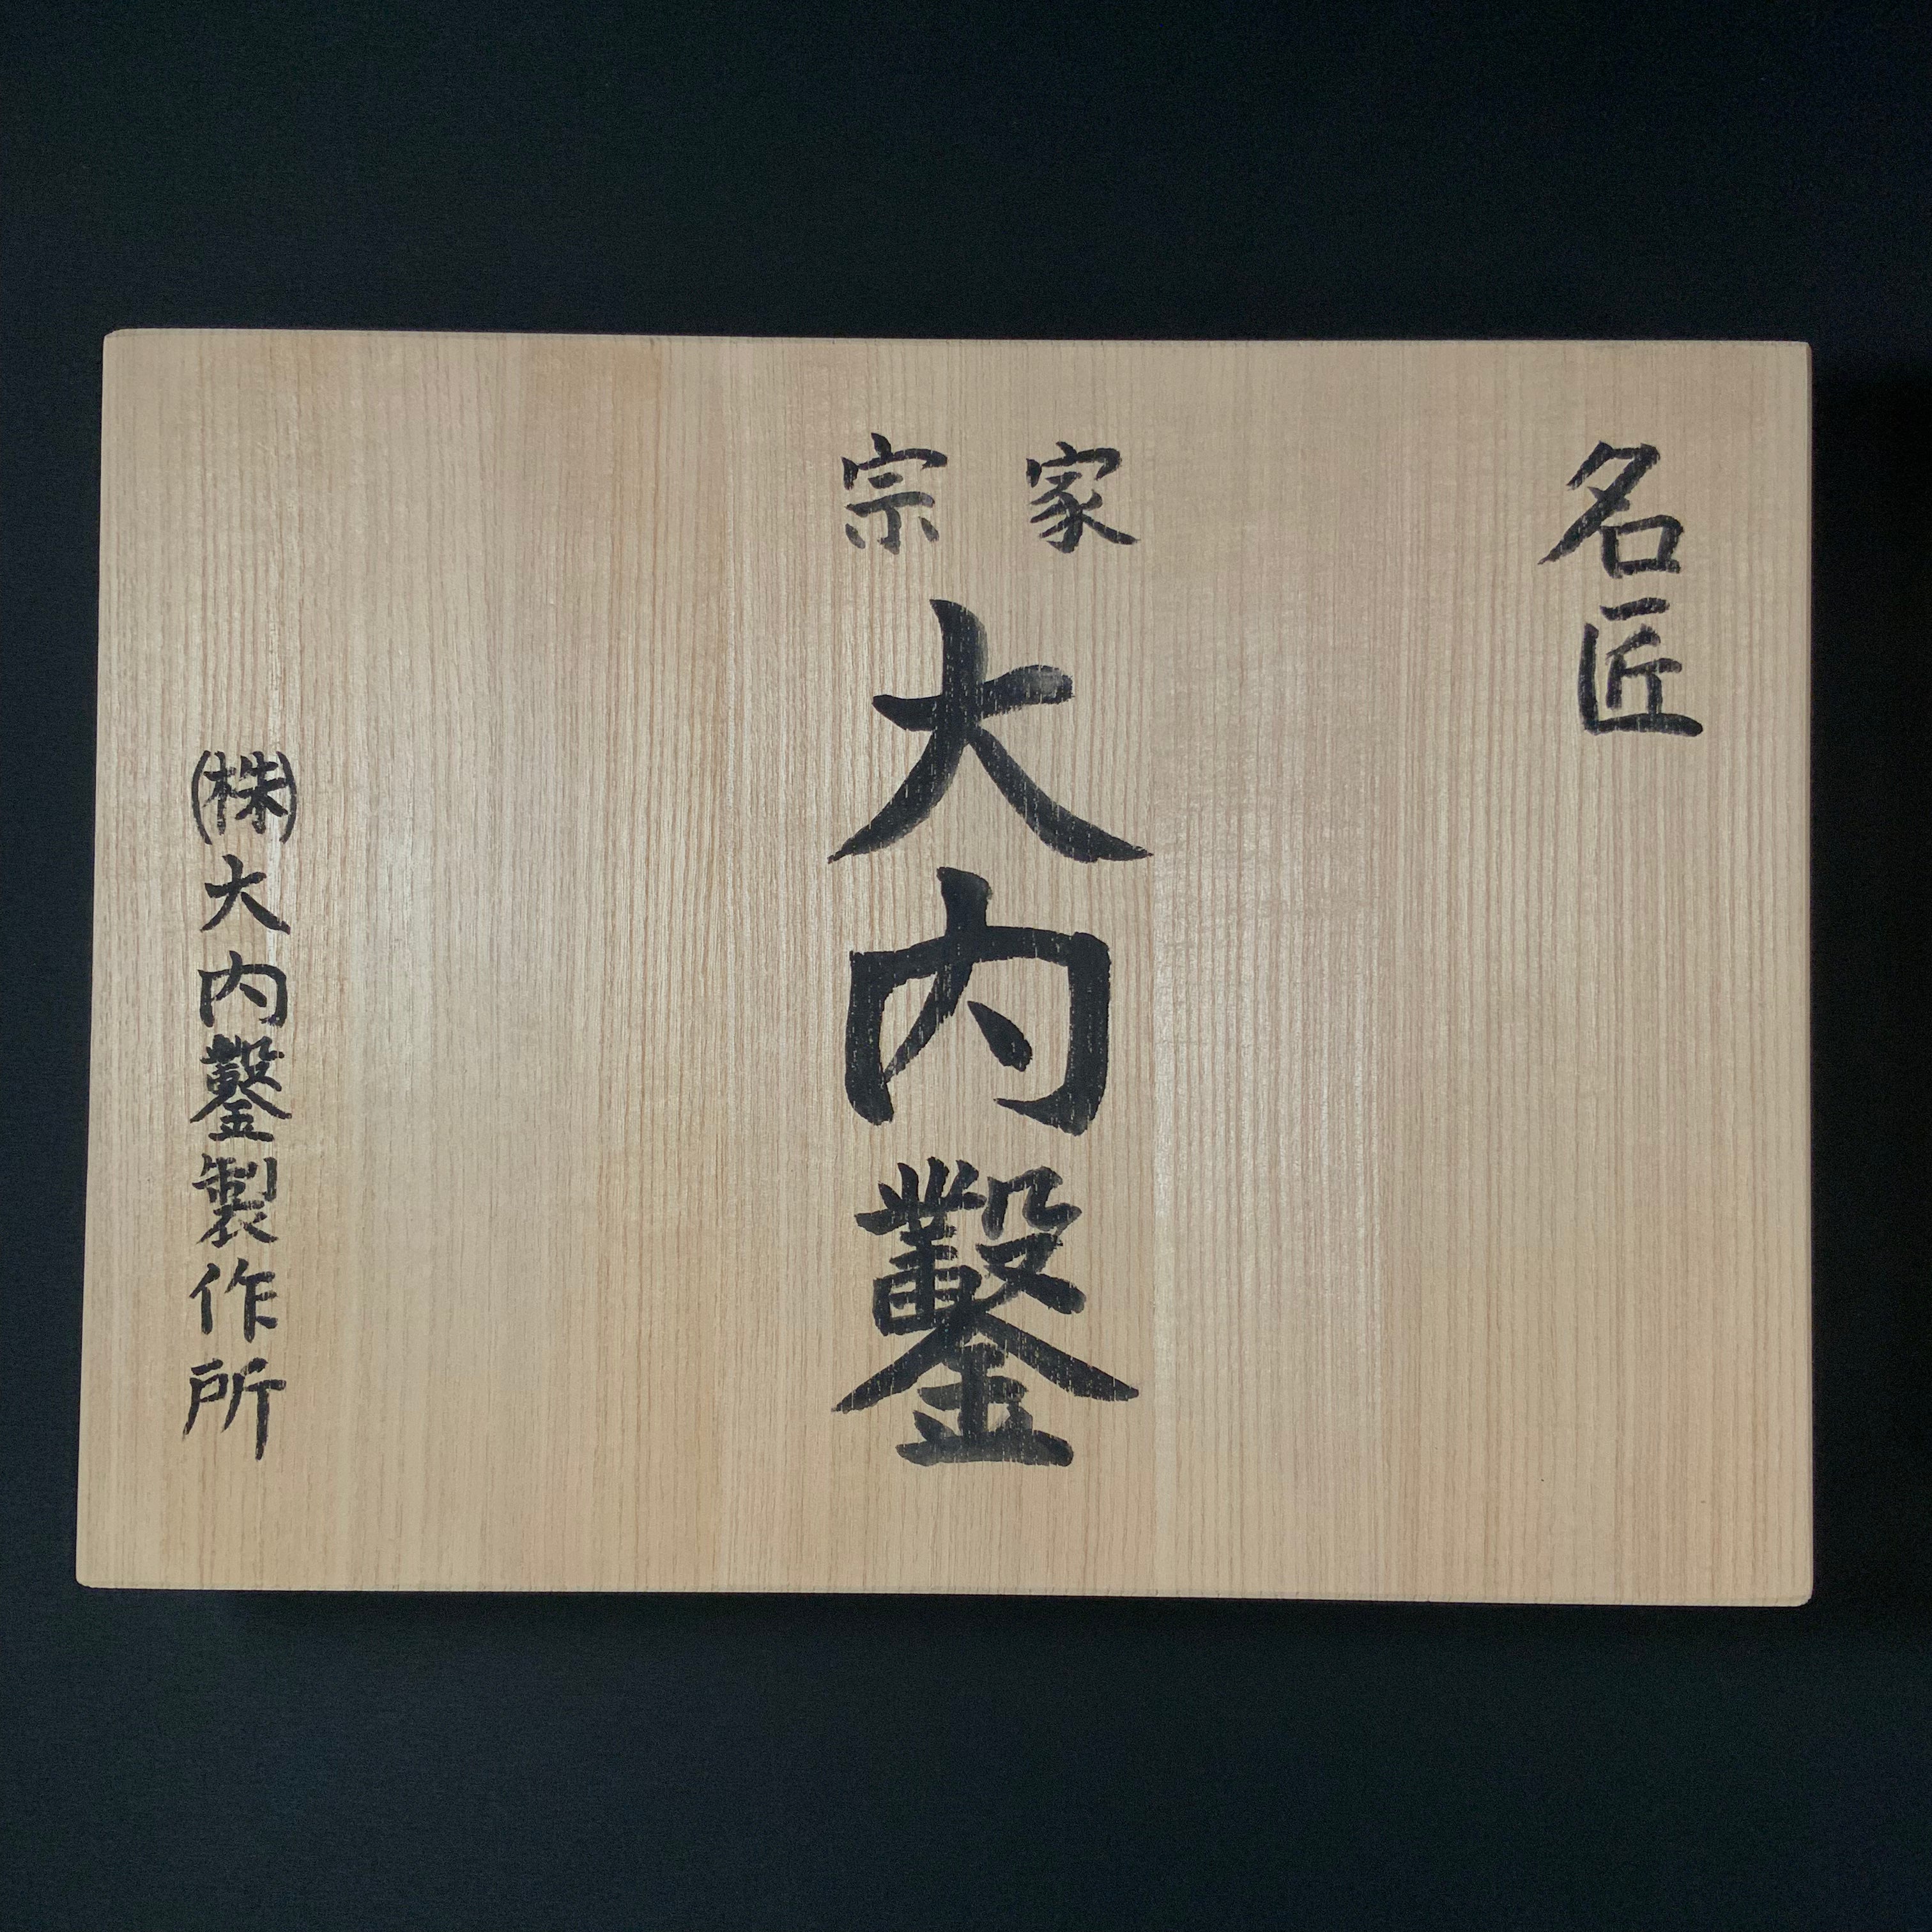 名匠
宗家
大内鑿
㈱大内鑿製作所